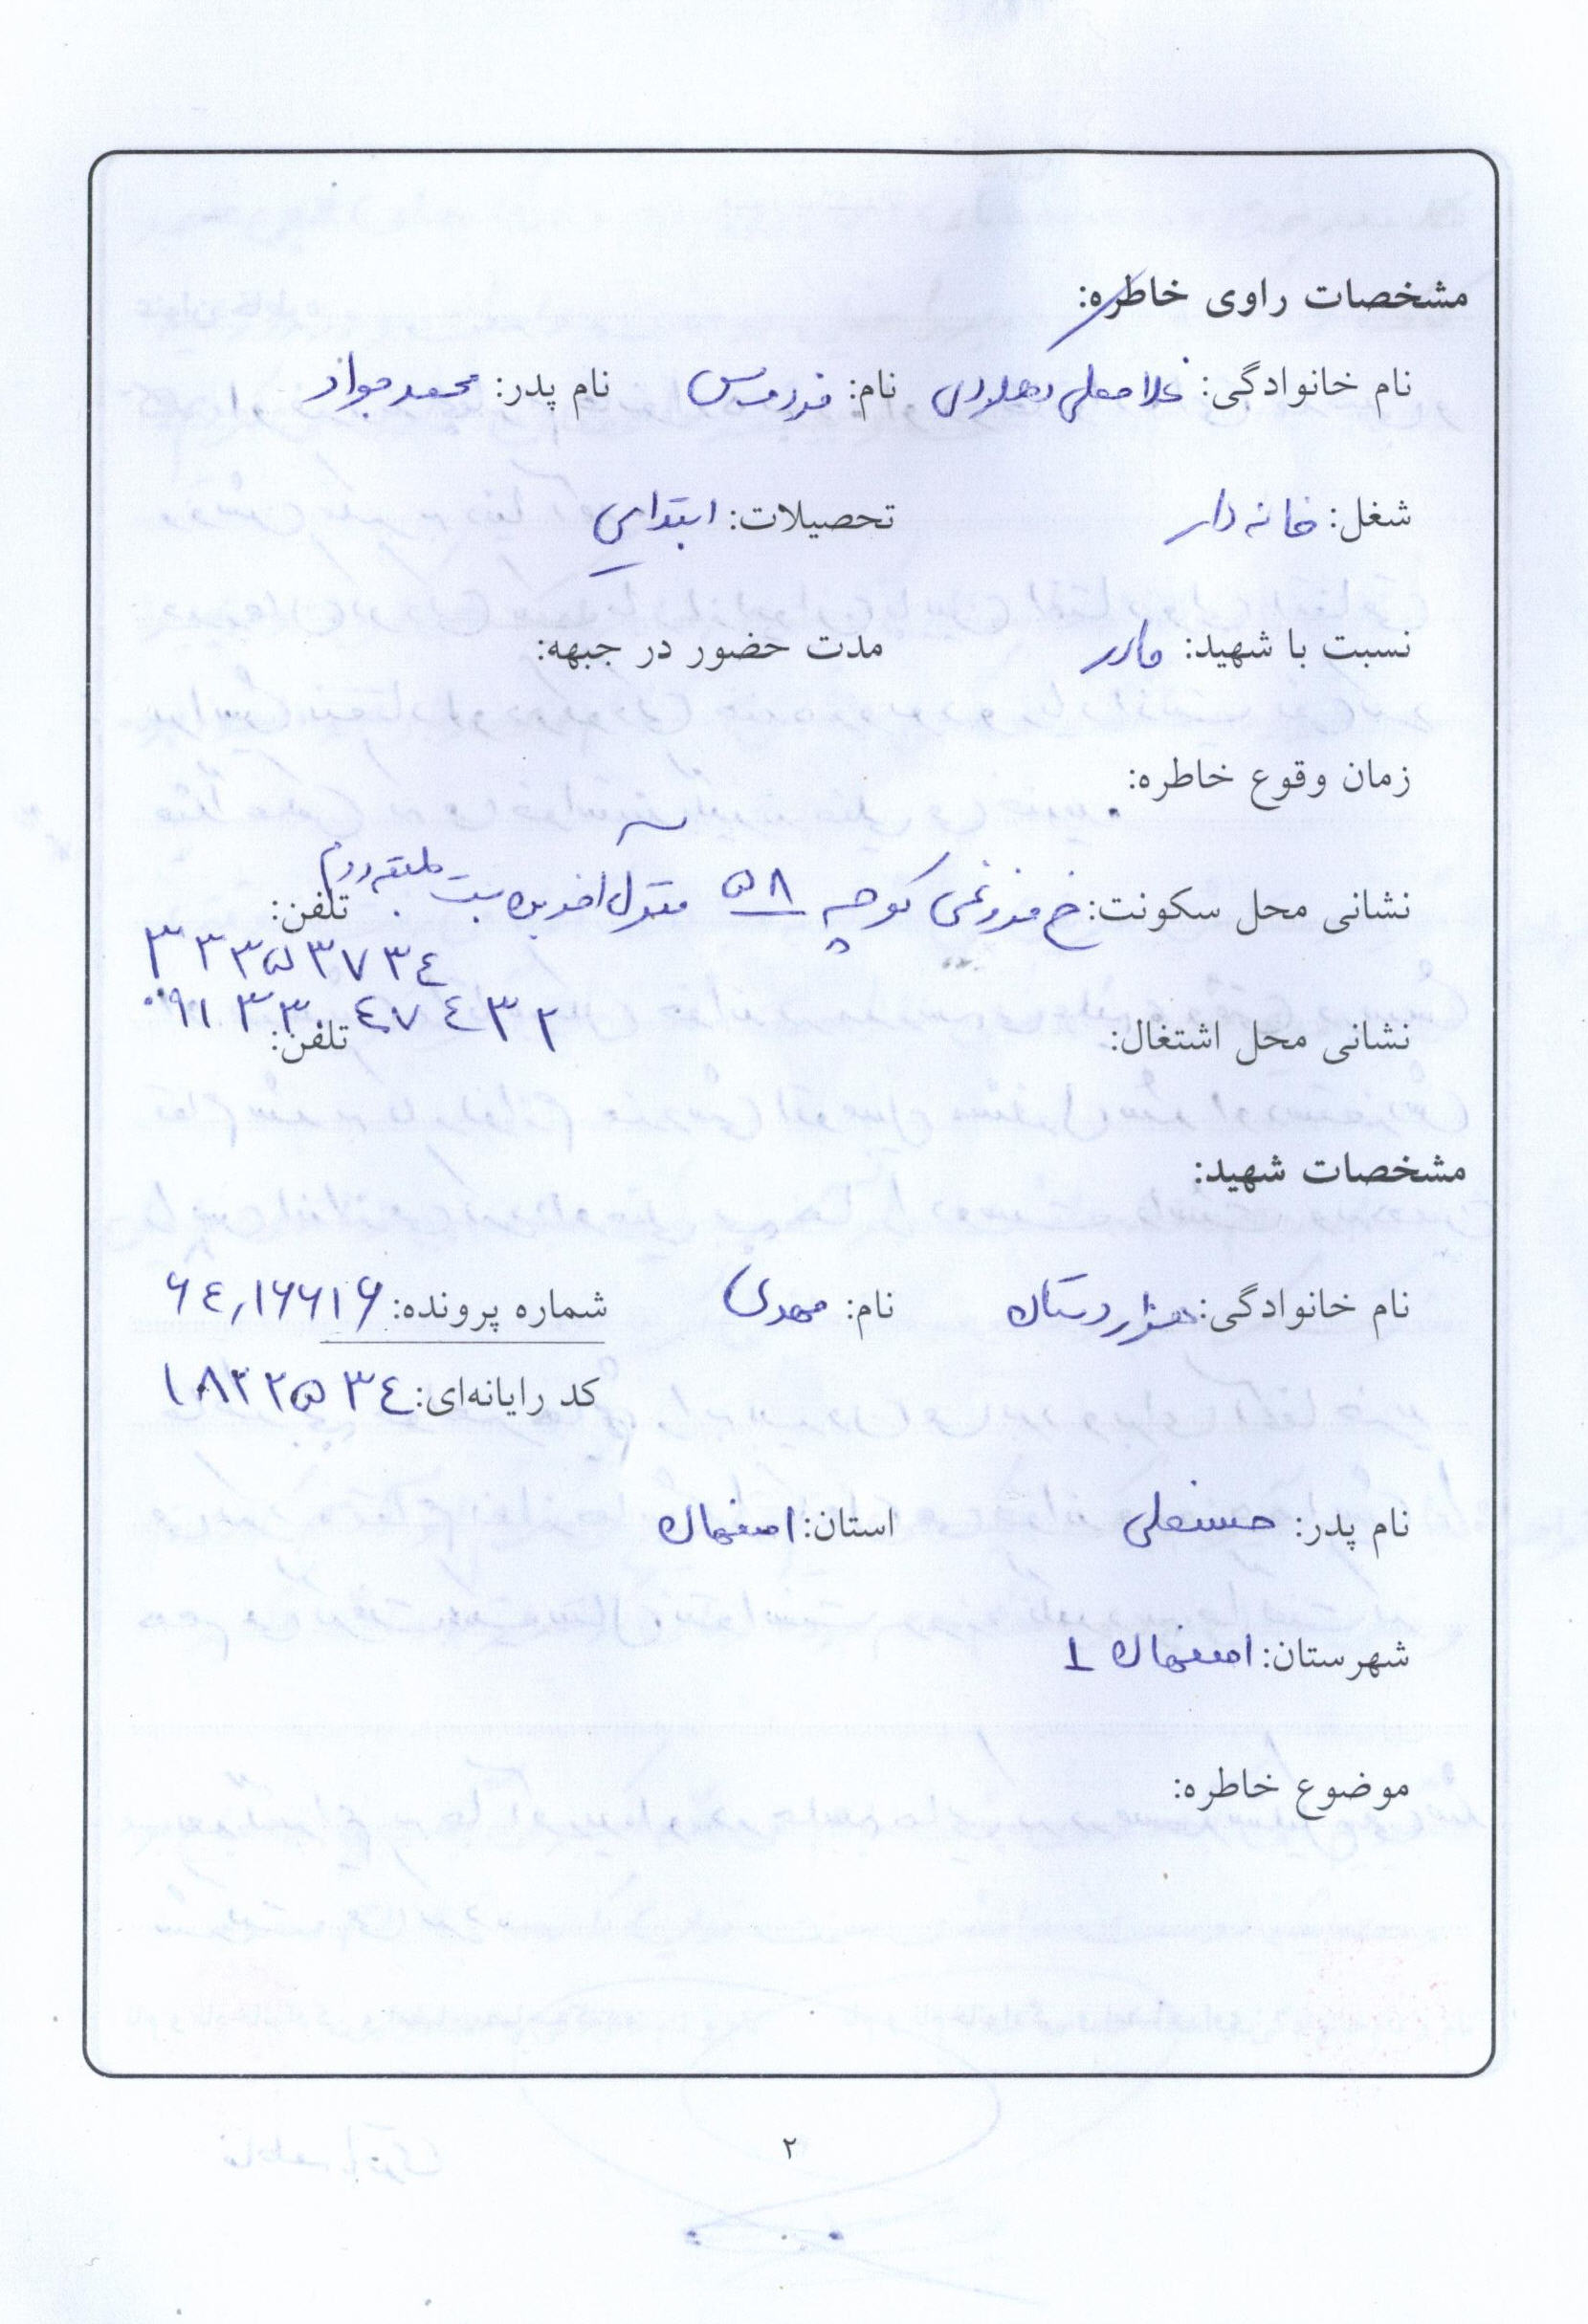 مشخصات راوی خاطره:
نام خانوادگی: غلامعلی دهلادی نام: فردوس نام پدر: محمدجواد
شغل: خانه دار تحصیلات: ابتدایی
نسبت با شهید: مادر مدت حضور در جبهه:
زمان وقوع خاطره:
نشانی محل سکونت: خ فروغی کوچه ۵۸ منزل آخر بن بست طبقه دوم تلفن:
۳۳۳۵۳۷۳۴
۰۹۱۳۳۰۴۷۴۳۲
نشانی محل اشتغال: تلفن:
مشخصات شهید:
نام خانوادگی: هزاردستان نام: مهدی شماره پرونده: ۶۴,۱۶۶۱۶
کد رایانه‌ای: ۱۸۲۲۵۳۴
نام پدر: حسنعلی استان: اصفهان
شهرستان: اصفهان ۱
موضوع خاطره:
۲